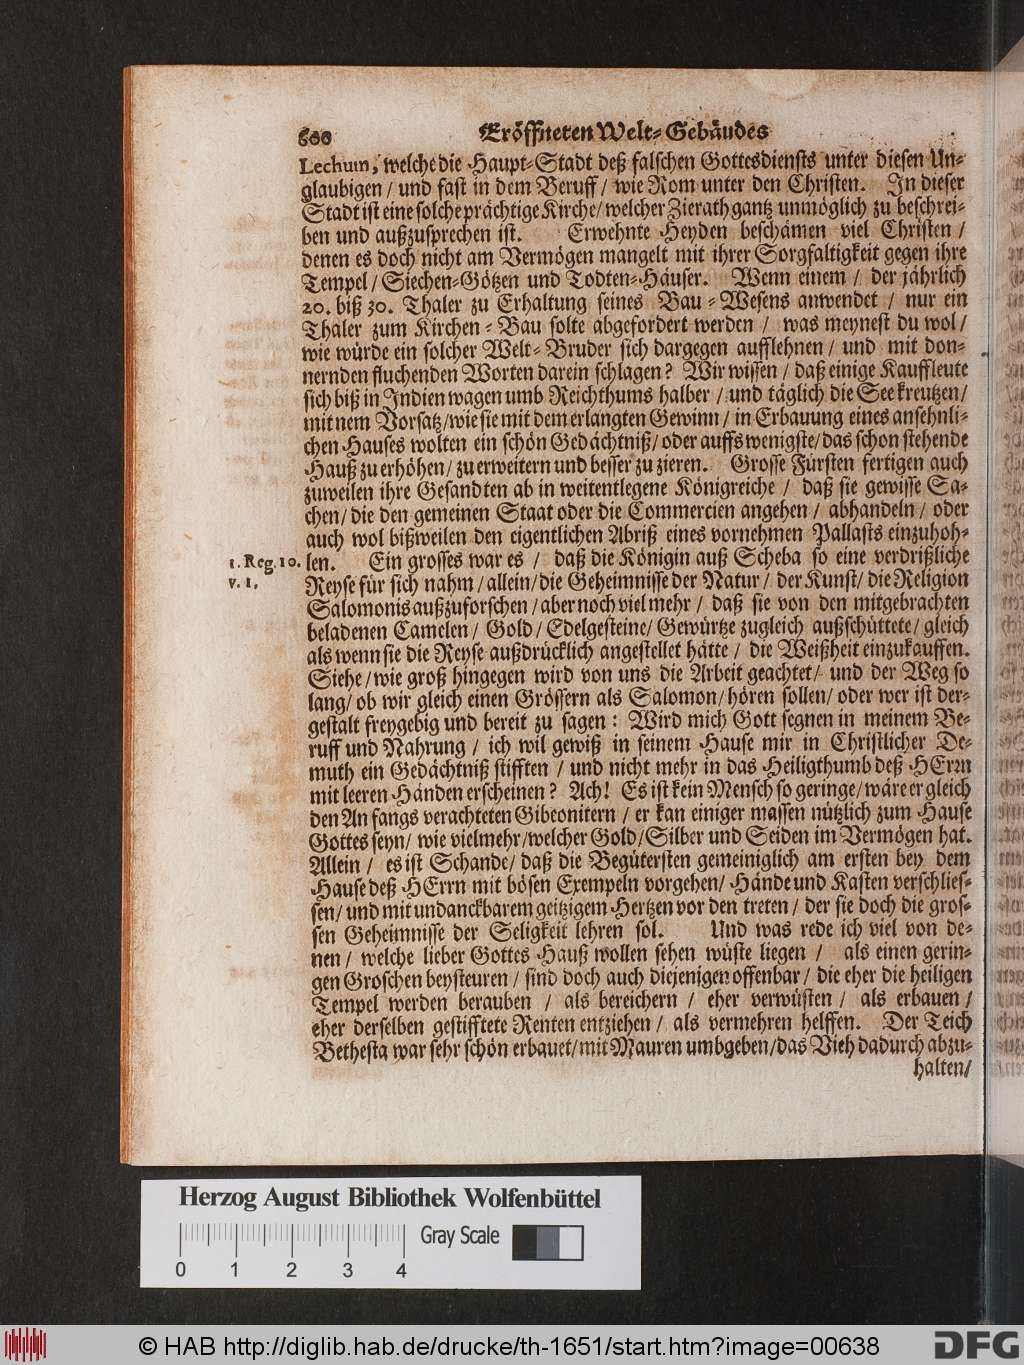 600 Eröffneten Welt-Gebäudes
Lechum, welche die Haupt-Stadt deß falschen Gottesdiensts unter diesen Un-
glaubigen / und fast in dem Beruff / wie Rom unter den Christen. In dieser
Stadt ist eine solche prächtige Kirche/ welcher Zierath gantz unmöglich zu beschrei-
ben und außzusprechen ist. Erwehnte Heyden beschämen viel Christen /
denen es doch nicht am Vermögen mangelt mit ihrer Sorgfaltigkeit gegen ihre
Tempel / Siechen-Götzen und Todten-Häuser. Wenn einem / der jährlich
20. biß 30. Thaler zu Erhaltung seines Bau-Wesens anwendet / nur ein
Thaler zum Kirchen-Bau solte abgefordert werden / was meynest du wol /
wie würde ein solcher Welt-Bruder sich dargegen aufflehnen / und mit don-
nernden fluchenden Worten darein schlagen? Wir wissen / daß einige Kauffleute
sich biß in Indien wagen umb Reichthums halber / und täglich die See kreutzen /
mit nem Vorsatz / wie sie mit dem erlangten Gewinn / in Erbauung eines ansehnli-
chen Hauses wolten ein schön Gedächtniß / oder auffs wenigste / das schon stehende
Hauß zu erhöhen / zu erweitern und besser zu zieren. Grosse Fürsten fertigen auch
zuweilen ihre Gesandten ab in weitentlegene Königreiche / daß sie gewisse Sa-
chen / die den gemeinen Staat oder die Commercien angehen / abhandeln / oder
auch wol bißweilen den eigentlichen Abriß eines vornehmen Pallasts einzuhoh-
1. Reg. 10. len. Ein grosses war es / daß die Königin auß Scheba so eine verdrißliche
v. 1. Reyse für sich nahm / allein / die Geheimnisse der Natur / der Kunst / die Religion
Salomonis außzuforschen / aber noch viel mehr / daß sie von den mitgebrachten
beladenen Camelen / Gold / Edelgesteine / Gewürtze zugleich außschüttete / gleich
als wenn sie die Reyse außdrücklich angestellet hätte / die Weißheit einzukauffen.
Siehe / wie groß hingegen wird von uns die Arbeit geachtet / und der Weg so
lang / ob wir gleich einen Grössern als Salomon / hören sollen / oder wer ist der-
gestalt freygebig und bereit zu sagen: Wird mich Gott segnen in meinem Be-
ruff und Nahrung / ich wil gewiß in seinem Hause mir in Christlicher De-
muth ein Gedächtniß stifften / und nicht mehr in das Heiligthumb deß HErrn
mit leeren Händen erscheinen? Ach! Es ist kein Mensch so geringe / wäre er gleich
den Anfangs verachteten Gibeonitern / er kan einiger massen nützlich zum Hause
Gottes seyn / wie vielmehr / welcher Gold / Silber und Seiden im Vermögen hat.
Allein / es ist Schande / daß die Begütersten gemeiniglich am ersten bey dem
Hause deß HErrn mit bösen Exempeln vorgehen / Hände und Kasten verschlies-
sen / und mit undanckbarem geitzigem Hertzen vor den treten / der sie doch die gros-
sen Geheimnisse der Seligkeit lehren sol. Und was rede ich viel von de-
nen / welche lieber Gottes Hauß wollen sehen wüste liegen / als einen gerin-
gen Groschen beysteuren / sind doch auch diejenigen offenbar / die eher die heiligen
Tempel werden berauben / als bereichern / eher verwüsten / als erbauen /
eher derselben gestifftete Renten entziehen / als vermehren helffen. Der Teich
Bethesta war sehr schön erbauet / mit Mauren umbgeben / das Vieh dadurch abzu-
halten /
Herzog August Bibliothek Wolfenbüttel
Gray Scale
0 1 2 3 4
© HAB http://diglib.hab.de/drucke/th-1651/start.htm?image=00638
DFG